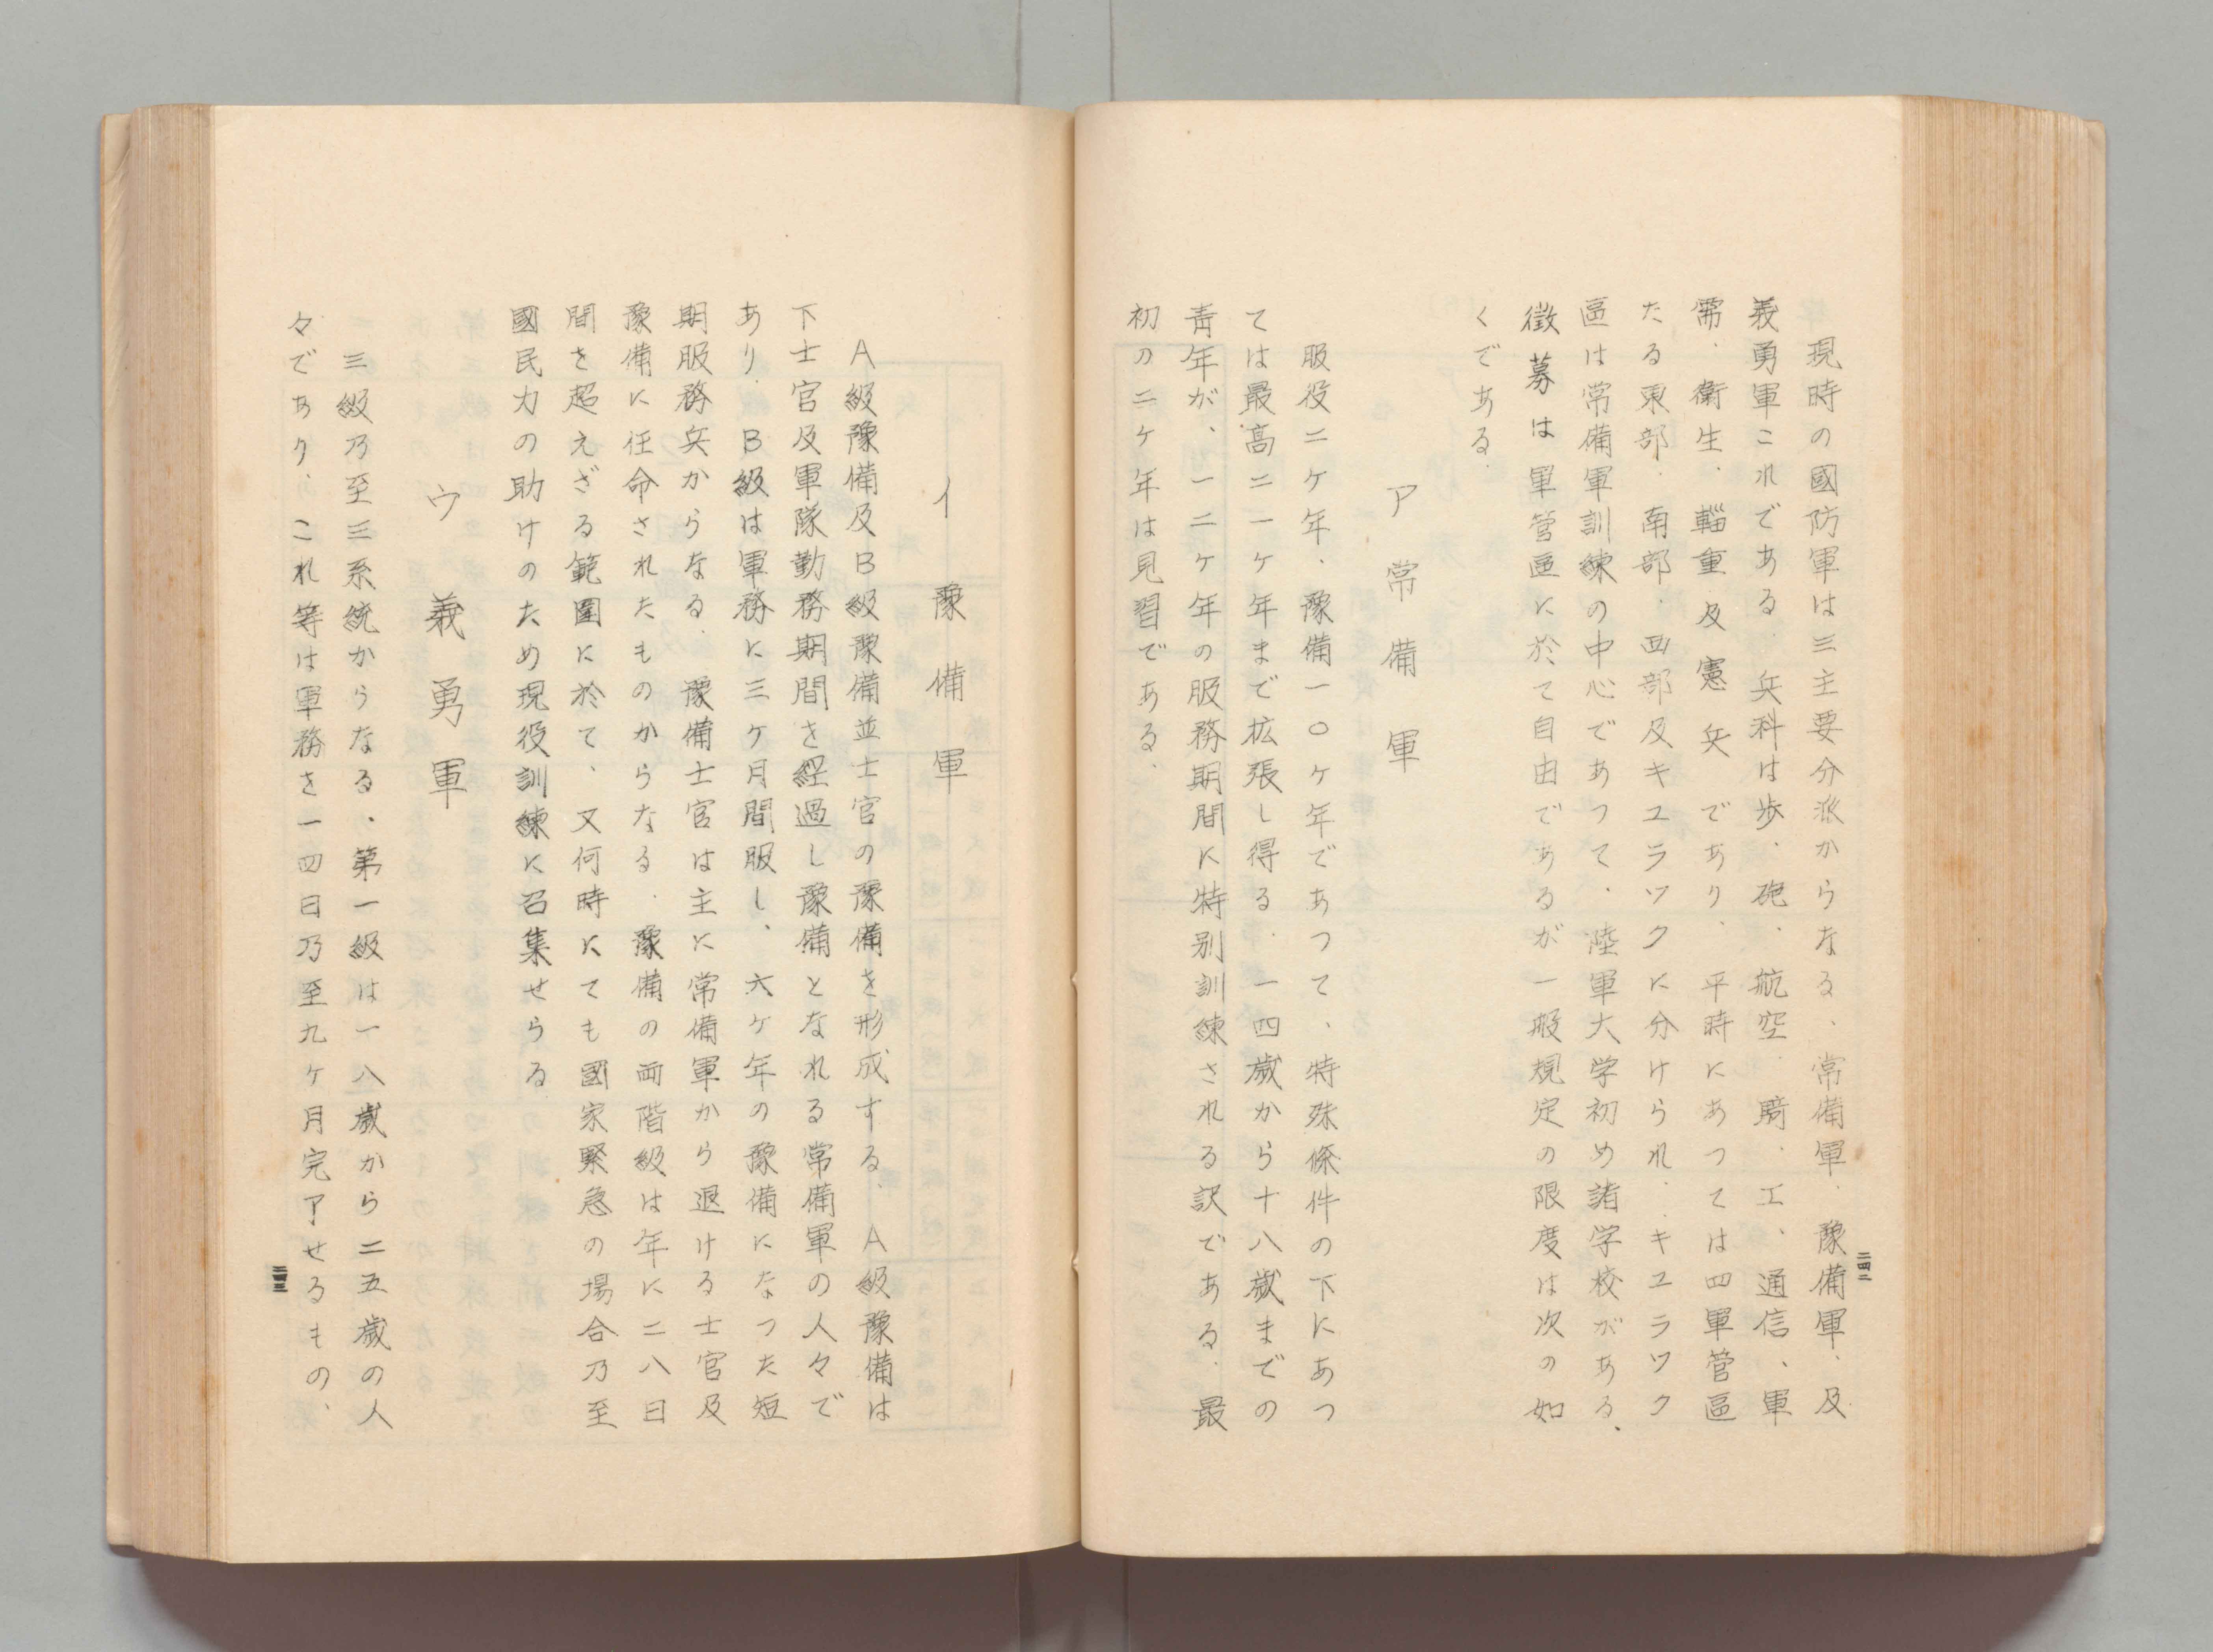 現時の國防軍は三主要分派からなる、常備軍、豫備軍、及
義勇軍これである、兵科は歩、砲、航空、騎、工、通信、軍
需、衛生、輜重及憲兵であり、平時にあつては四軍管區
たる東部、南部、西部及キユラツクに分けられ、キユラツク
區は常備軍訓練の中心であつて、陸軍大学初め諸学校がある、
徴募は軍管區に於て自由であるが一般規定の限度は次の如
くである、
ア常備軍
服役二ケ年、豫備一〇ケ年であつて、特殊條件の下にあつ
ては最高二一ケ年まで拡張し得る、一四歳から十八歳までの
青年が、一二ケ年の服務期間に特别訓練される訳である、最
初の二ケ年は見習である、
二四二
イ豫備軍
A級豫備及B級豫備並士官の豫備を形成する、A級豫備は
下士官及軍隊勤務期間を経過し豫備となれる常備軍の人々で
あり、B級は軍務に三ケ月間服し、六ケ年の豫備になつた短
期服務兵からなる、豫備士官は主に常備軍から退ける士官及
豫備に任命されたものからなる、豫備の両階級は年に二八日
間を超えざる範圍に於て、又何時にても國家緊急の場合乃至
國民力の助けのため現役訓練に召集せらる
ウ義勇軍
三級乃至三系統からなる、第一級は一八歳から二五歳の人
々であり、これ等は軍務を一四日乃至九ケ月完了せるもの、
二四三